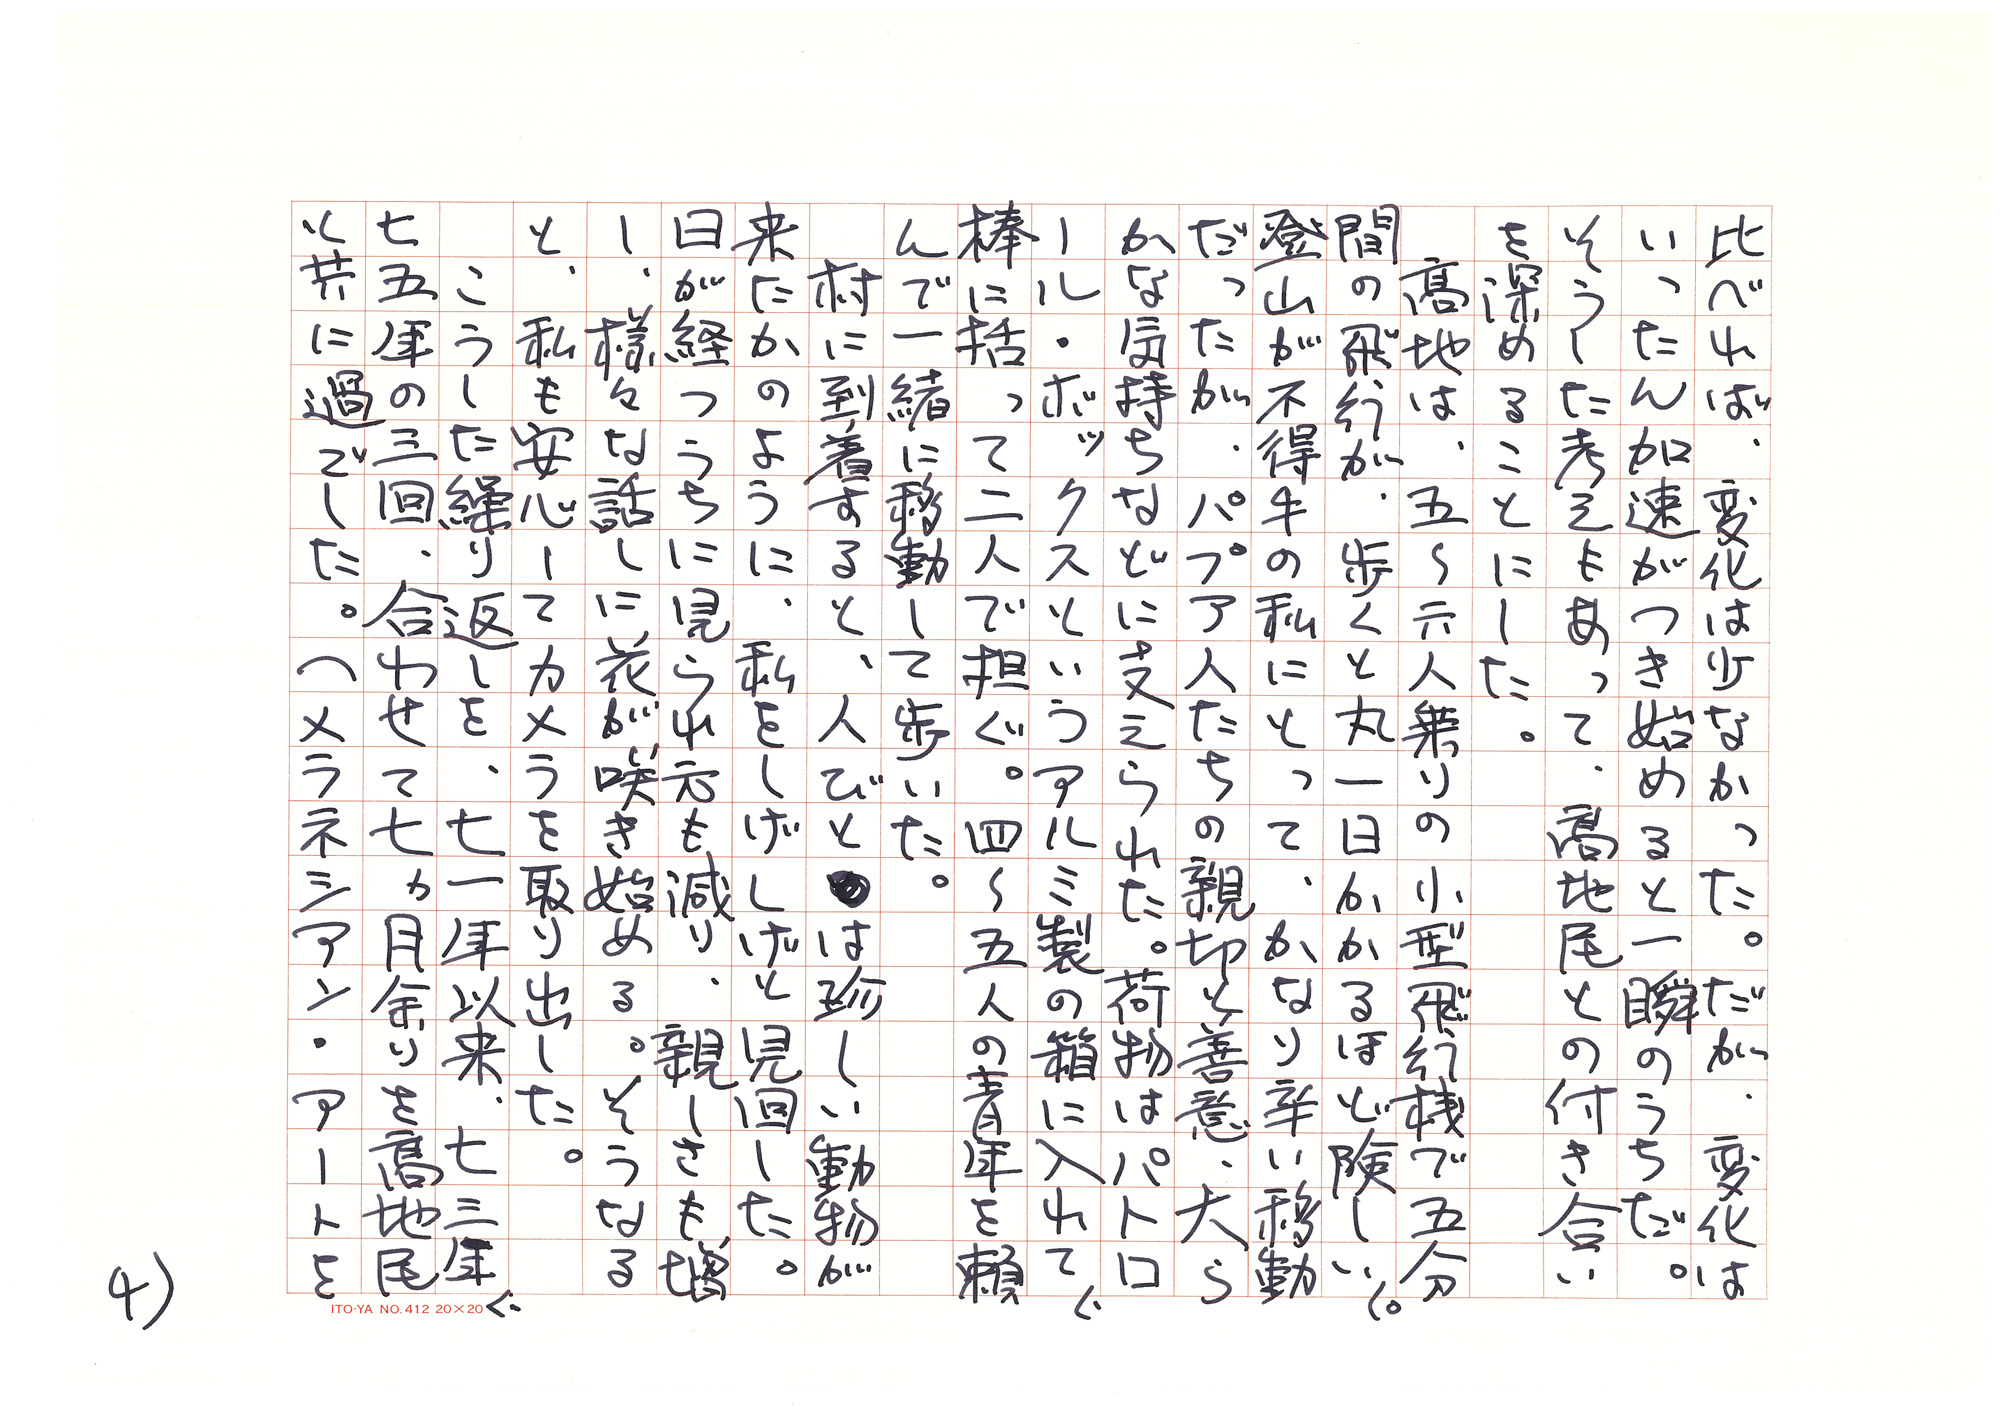 比べれば、変化は少なかった。だが、変化は
いったん加速がつき始めると一瞬のうちだ。
そうした考えもあって、高地民との付き合い
を深めることにした。
高地は、五〜六人乗りの小型飛行機で五分
間の飛行が、歩くと丸一日かかるほど険しい。
登山が不得手の私にとって、かなり辛い移動
だったが、パプア人たちの親切と善意、大ら
かな気持ちなどに支えられた。荷物はパトロ
ール・ボックスというアルミ製の箱に入れて、
棒に括って二人で担ぐ。四〜五人の青年を頼
んで一緒に移動して歩いた。
村に到着すると、人びとは珍しい動物が
来たかのように、私をしげしげと見回した。
日が経つうちに見られ元も減り、親しさも増
し、様々な話しに花が咲き始める。そうなる
と、私も安心してカメラを取り出した。
こうした繰り返しを、七一年以来、七三年、
七五年の三回、合わせて七ヵ月余りを高地民
と共に過ごした。〈メラネシアン・アートを
ITO-YA NO.412 20×20
4)